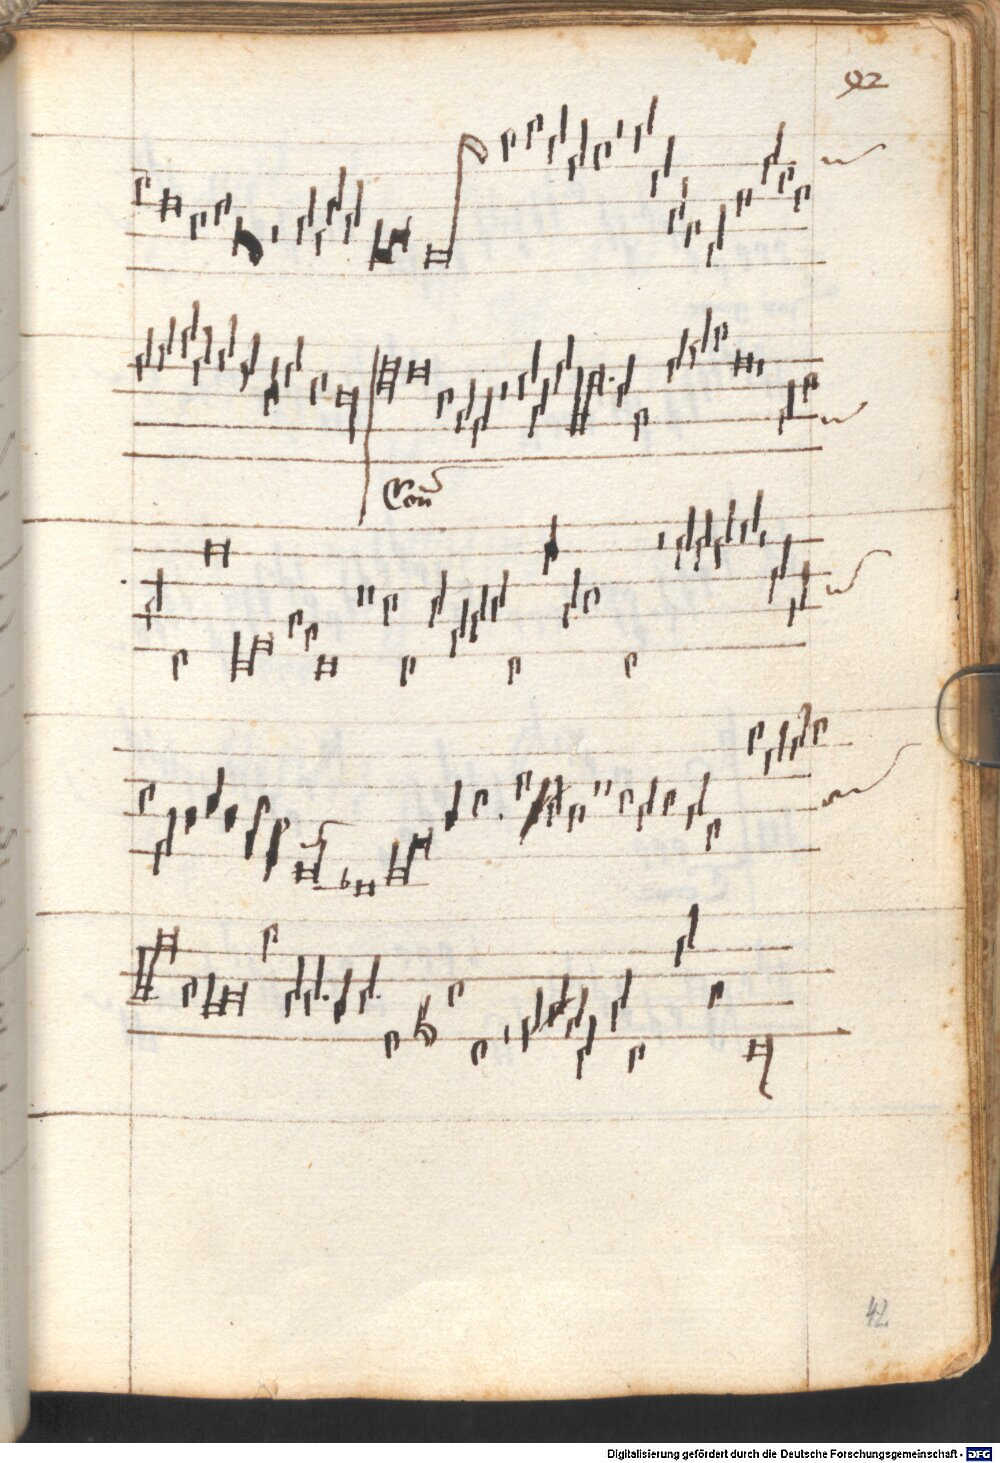 42
Con
42
Digitalisierung gefördert durch die Deutsche Forschungsgemeinschaft - DFG